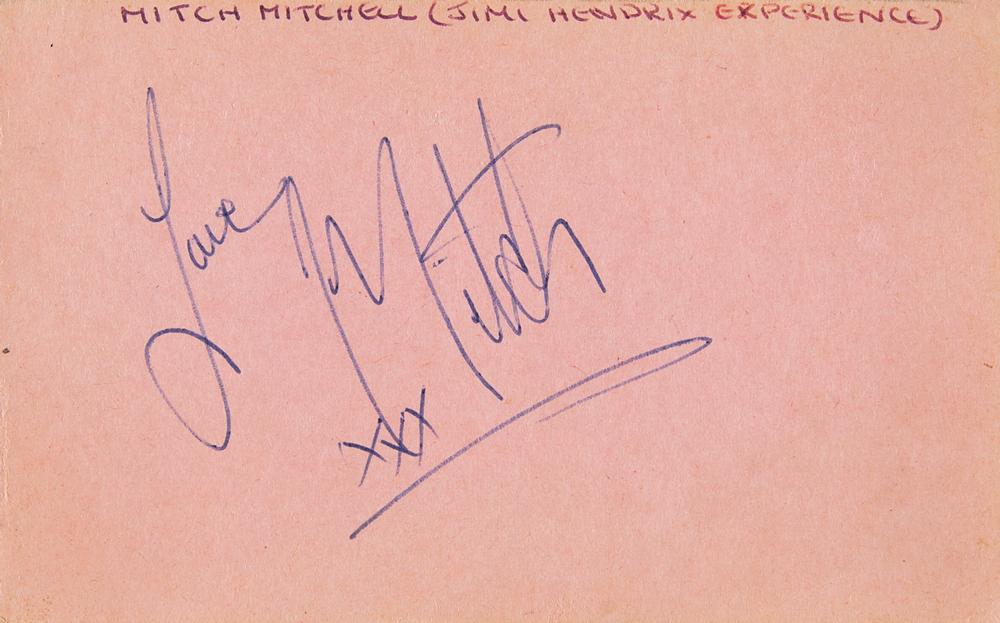 MITCH MITCHELL (JIMI HENDRIX EXPERIENCE)
Love Mitch
xxx